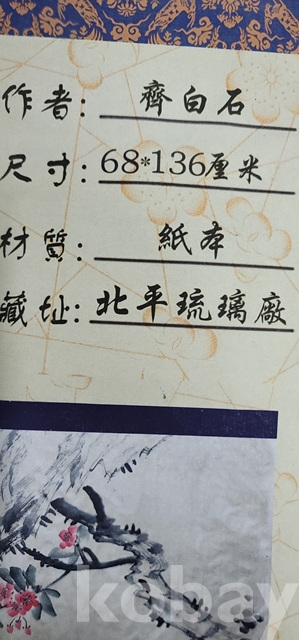 作者：齊白石
尺寸：68*136厘米
材質：紙本
藏址：北平琉璃廠
kobay